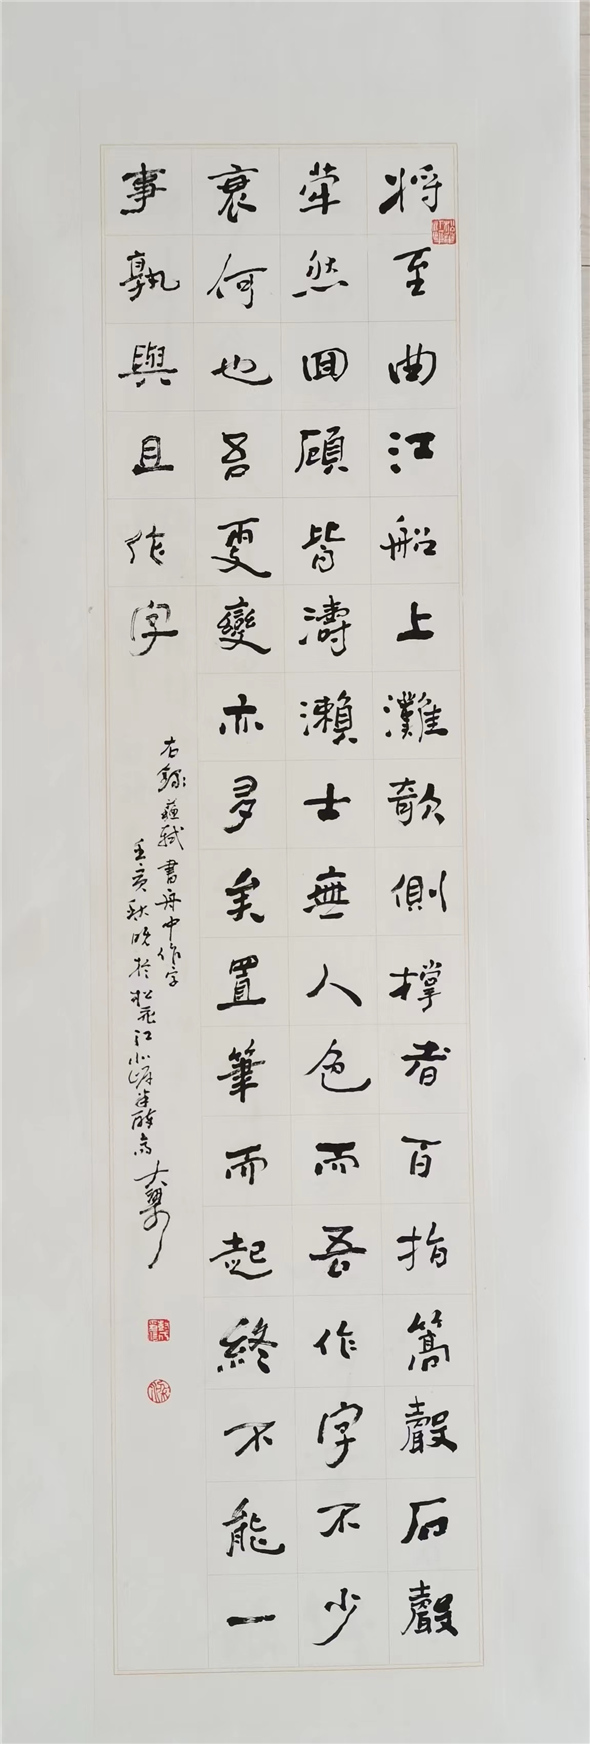 将至曲江船上灘欹側撐者百指篙聲石聲
犖然回顧皆濤瀨士無人色而吾作字不少
衰何也吾更變亦多矣置筆而起終不能一
事孰與且作字
右錄蘇軾書舟中作字
亥秋晚於松花江北岸半醉齋